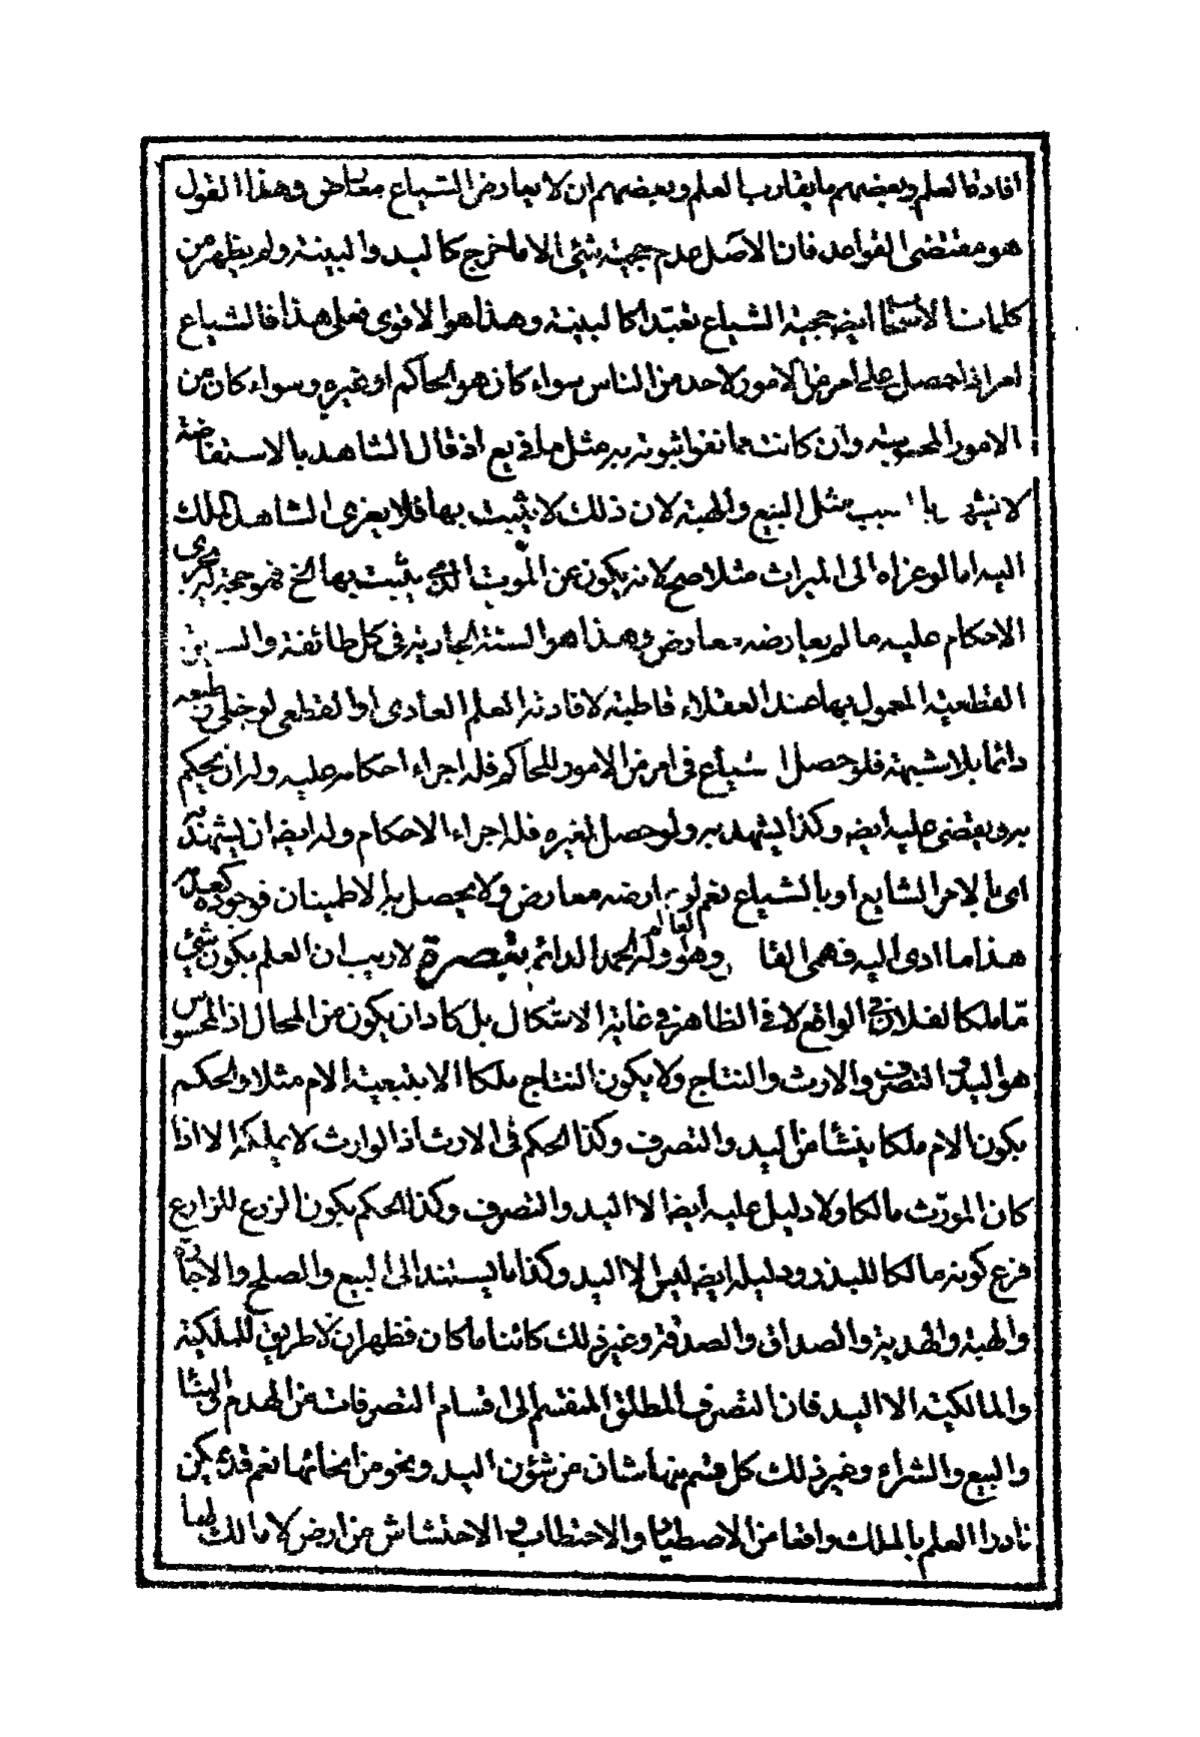 افادته العلم وبعضهم ما يقارب العلم وبعضهم ان لا يعارض الشياع معارض وهذا القول
هو مقتضى القواعد فان الاصل عدم حجية شئ الا ما خرج كاليد والبينة ولم يظهر من
كلمات الاصحاب ايضا حجية الشياع تعبدا كالبينة وهذا هو الاقوى فعلى هذا فالشياع
امر اذا حصل على امر من الامور لاحد من الناس سواء كان هو الحاكم او غيره وسواء كان من
الامور المحسوسة وان كانت مما نفوا ثبوته به مثل ما في يع اذ قال الشاهد بالاستفاضة
لا يشهد بالسبب مثل البيع والهبة لان ذلك لا يثبت بها فلا يعزى الشاهد الملك
اليه اما لو عزاه الى الميراث مثلا صح لانه يكون عن الموت الذى يثبت بها الخ فهو حجة ليجرى
الاحكام عليه ما لم يعارضه معارض وهذا هو السنة الجارية في كل طائفة والسـ
القطعية المعمول بها عند العقلاء قاطبة لافادته العلم العادى او القطعى لو خلى وطبعه
دائما بلا شبهة فلو حصل الشياع في امر من الامور للحاكم فله اجراء احكامه عليه وله ان يحكم
به ويقضى عليه ايضه وكذا يشهد به ولو حصل لغيره فله اجراء الاحكام وله ايضه ان يشهد به
اى بالامر الشايع او بالشياع نعم لو عارضه معارض ولا يحصل به الاطمينان فوجوده كعدمه
هذا ما ادى اليه فهمى القا وهو العالم وله الحمد الدائم تبصرة لا ريب ان العلم بكون شئ
مّا ملكا لفلان في الواقع لا في الظاهر في غاية الاشكال بل كاد ان يكون من المحال اذ المحسوس
هو اليد والتصرف والارث والنتاج ولا يكون النتاج ملكا الا بتبعية الام مثلا والحكم
بكون الام ملكا ينشأ من اليد والتصرف وكذا الحكم في الارث اذ الوارث لا يملكه الا اذا
كان المورّث مالكا ولا دليل عليه ايضا الا اليد والتصرف وكذا الحكم بكون الزرع للزارع
فرع كونه مالكا للبذر ودليله ايضه ليس الا اليد وكذا ما يستند الى البيع والصلح والاجارة
والهبة والهدية والصداق والصدقة وغير ذلك كائنا ما كان فظهر ان لا طريق للملكية
والمالكية الا اليد فان التصرف المطلق المنقسم الى اقسام التصرفات من الهدم والبناء
والبيع والشراء وغير ذلك كل قسم منها شان من شؤن اليد ونحو من انحائها نعم قد يمكن
نادرا العلم بالملك واقعا من الاصطياد والاحتطاب والاحتشاش من ارض لا مالك لها